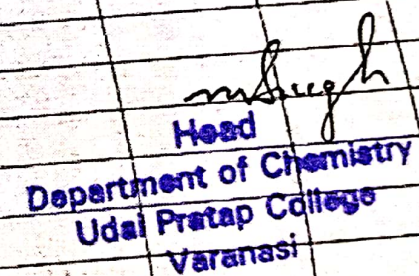 Head
Department of Chemistry
Udai Pratap College
Varanasi